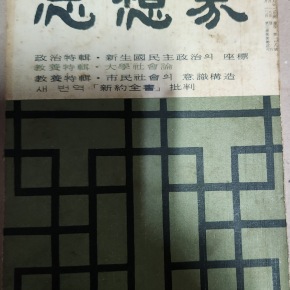 思想家
政治特輯·新生國民主政治의 座標
敎養特輯·大學社會論
敎養特輯·市民社會의 意識構造
새 번역「新約全書」批判